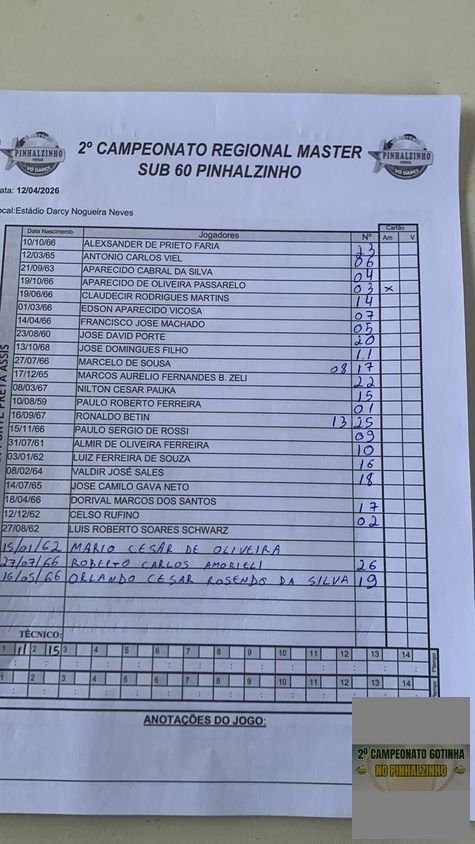 PINHALZINHO
VÔ DARCI
2º CAMPEONATO REGIONAL MASTER
SUB 60 PINHALZINHO
PINHALZINHO
VÔ DARCI
ata: 12/04/2026
ocal:Estádio Darcy Nogueira Neves
Cartão
Data Nascimento Jogadores Nº Am V
10/10/66 ALEXSANDER DE PRIETO FARIA 23
12/03/65 ANTONIO CARLOS VIEL 06
21/09/63 APARECIDO CABRAL DA SILVA 04
19/10/66 APARECIDO DE OLIVEIRA PASSARELO 03 x
19/06/66 CLAUDECIR RODRIGUES MARTINS 14
01/03/66 EDSON APARECIDO VICOSA 07
14/04/66 FRANCISCO JOSE MACHADO 05
23/08/60 JOSE DAVID PORTE 20
13/10/68 JOSE DOMINGUES FILHO 11
27/07/66 MARCELO DE SOUSA 08 17
17/12/65 MARCOS AURELIO FERNANDES B. ZELI 22
08/03/67 NILTON CESAR PAUKA 15
10/08/59 PAULO ROBERTO FERREIRA 01
16/09/67 RONALDO BETIN 13 25
15/11/66 PAULO SERGIO DE ROSSI 09
31/07/61 ALMIR DE OLIVEIRA FERREIRA 10
03/01/62 LUIZ FERREIRA DE SOUZA 16
08/02/64 VALDIR JOSÉ SALES 18
14/07/65 JOSE CAMILO GAVA NETO
18/04/66 DORIVAL MARCOS DOS SANTOS 17
12/12/62 CELSO RUFINO 02
27/08/62 LUIS ROBERTO SOARES SCHWARZ
15/01/62 MARIO CESAR DE OLIVEIRA
27/07/66 ROBERTO CARLOS AMORIELI 26
16/05/66 ORLANDO CESAR ROSENDO DA SILVA 19
PONTE PRETA ASSIS
TÉCNICO:
1 11 2 15 3 4 5 6 7 8 9 10 11 12 13 14
1 2 3 4 5 6 7 8 9 10 11 12 13 14
ANOTAÇÕES DO JOGO:
2º CAMPEONATO 60TINHA
NO PINHALZINHO